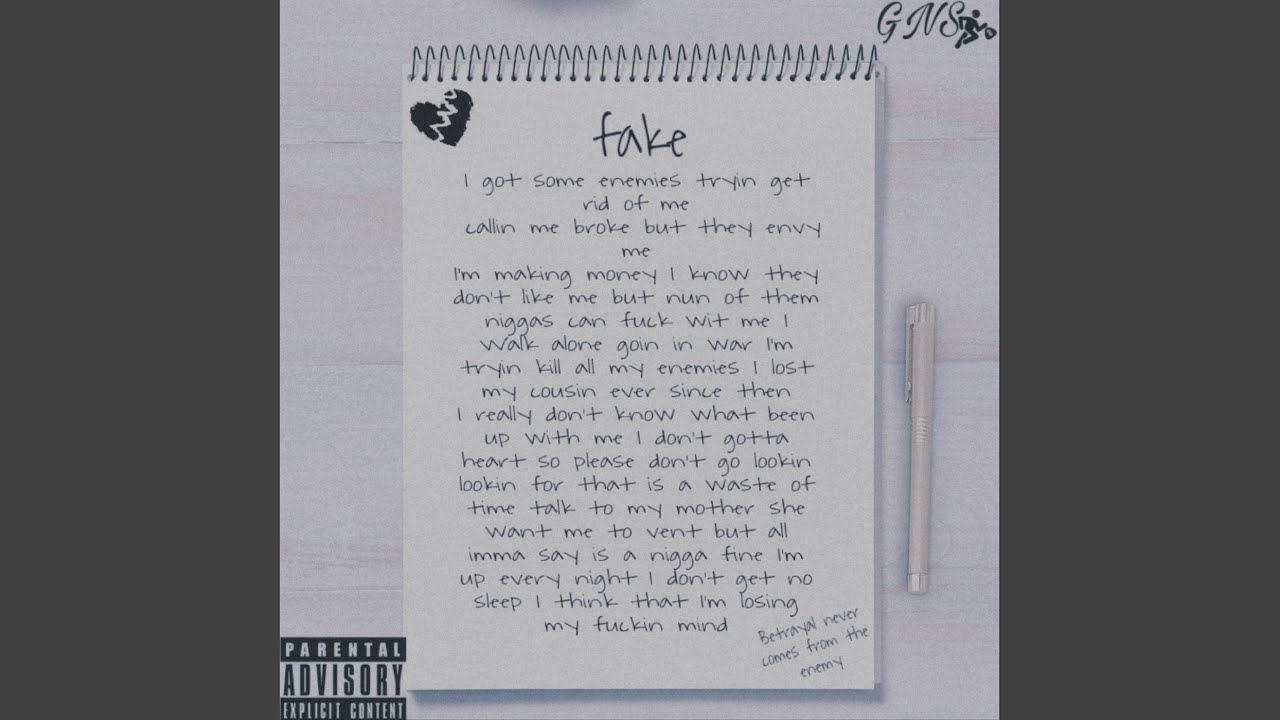 GNS
fake
I got some enemies tryin get
rid of me
callin me broke but they envy
me
I'm making money I know they
don't like me but nun of them
niggas can fuck wit me I
walk alone goin in war I'm
tryin kill all my enemies I lost
my cousin ever since then
I really don't know what been
up with me I don't gotta
heart so please don't go lookin
lookin for that is a waste of
time talk to my mother she
want me to vent but all
imma say is a nigga fine I'm
up every night I don't get no
sleep I think that I'm losing
my fuckin mind
Betrayal never
comes from the
enemy
PARENTAL
ADVISORY
EXPLICIT CONTENT